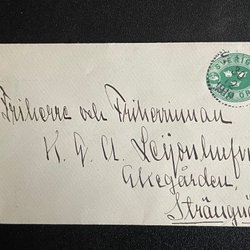 SVERIGE
Friherre och Friherrinnan
K. G. A. Leijonhufv
Åkegården,
Strängnä